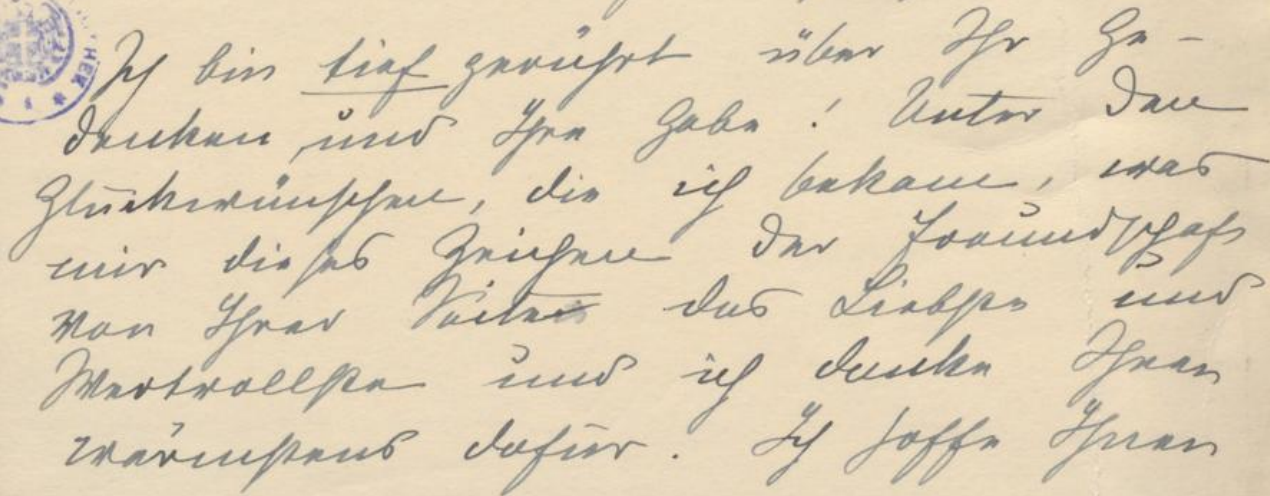 HEK *
Ich bin tief gerührt über Ihr Ge-
denken und Ihre Gabe! Unter den
Glückwünschen, die ich bekam, war
mir dieses Zeichen der Freundschaft
von Ihrer Seite das Liebste und
Wertvollste und ich danke Ihnen
wärmstens dafür. Ich hoffe Ihnen